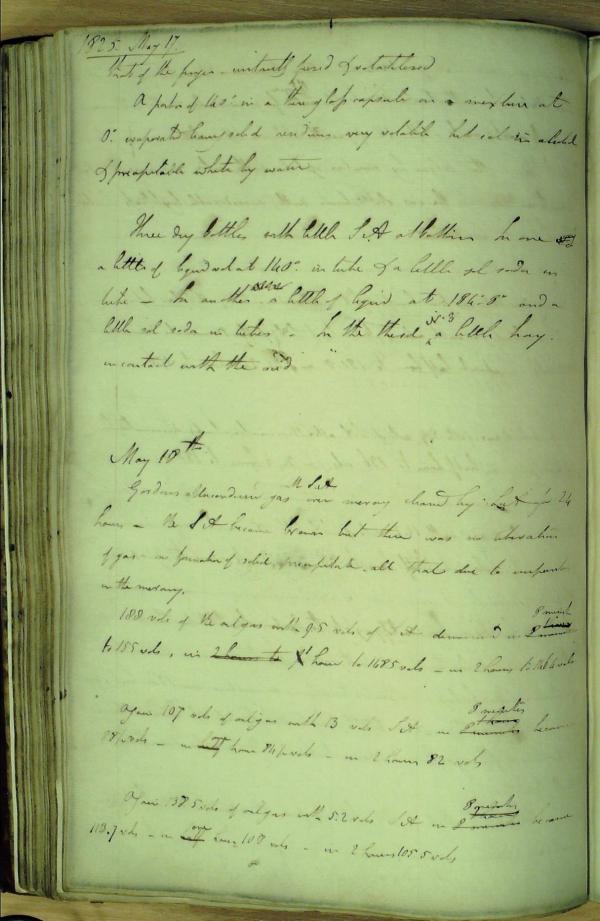 1825. May 17.
that of the paper - instantly fused & volatilised
A portion of 140° in a thin glass capsule on a mixture at
0° evaporated leaving solid residuum very volatile but sol in alcohol
& precipitable white by water
Three dry bottles with little S.A at bottom In one
a little of liquid sol at 140° in tube & a little sol soda in
tube - In another a little of liquid at 186° 0° and a
little sol soda in tubes - In the third N. 3 a little
in contact with the acid
May 18th
Gordons gas over mercury by S A for 24
hours - the S A became brown but there was no liberation
of gas - or formation of solid precipitate. all that due to
in the mercury.
188 vols of the oil gas with 9.5 vols of S A diminished in 8 minutes
to 155 vols, in 1 hour to 148.5 vols - in 2 hours to 146.4 vols
Again 107 vols of oil gas with 13 vols S A in 8 minutes became
vols - in hour vols - in 2 hours 82 vols
Again 138.5 vols of oil gas with 5.2 vols S A in 8 minutes became
118.7 vols - in hour 108 vols - in 2 hours 105.5 vols